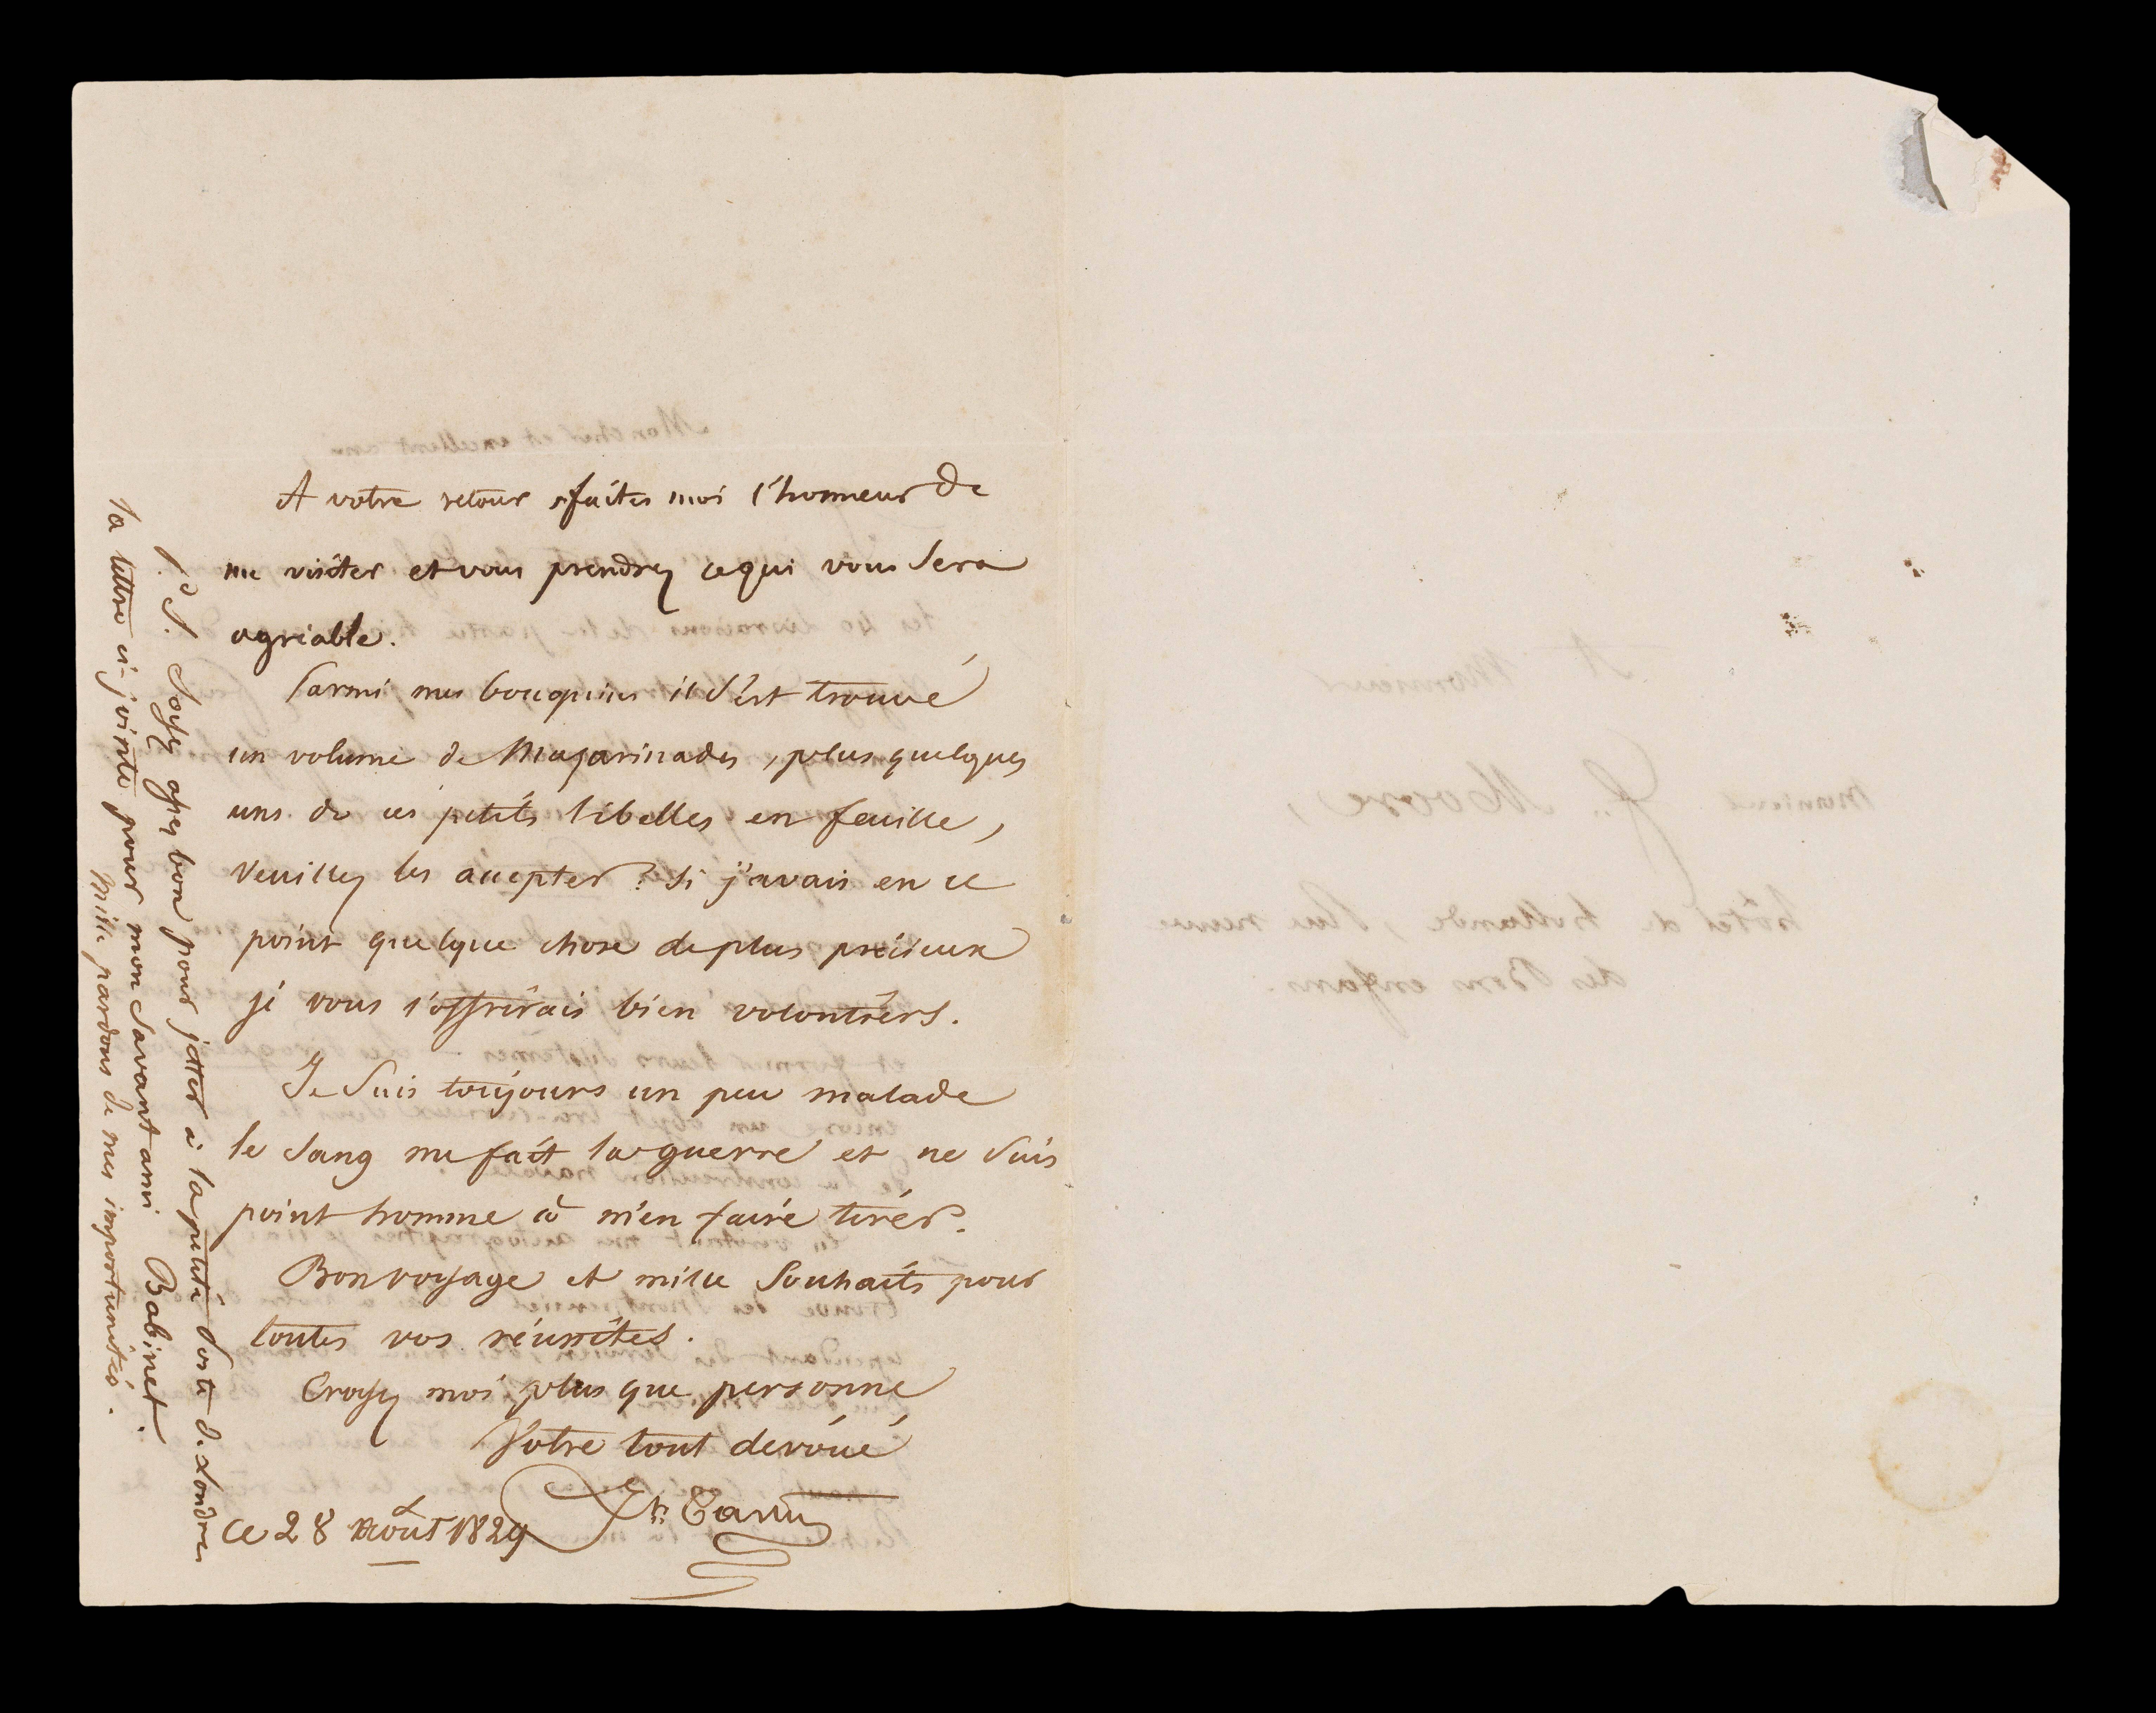 A votre retour faites moi l'honneur de
me visiter et vous prendrez ce qui vous sera
agriable.
Parmi mes bouquins il s'est trouvé
un volume de Mazarinades, plus quelques
uns de ces petits libelles en feuille,
veuillez les accepter. si j'avais en ce
point quelque chose de plus précieux
je vous l'offrirais bien volontiers.
Je suis toujours un peu malade
le sang me fait la guerre et ne suis
point homme à m'en faire tirer.
Bon voyage et mille souhaits pour
toutes vos réussites.
Croyez moi plus que personne
Votre tout dévoué
ce 28 Août 1829
P.S. Soyez assez bon pour jetter à la petite poste de Londres
la lettre ci-jointe pour mon savant ami Babinet.
Mille pardons de mes importunités.
A Monsieur
Monsieur J. Moore,
hôtel de hollande, Rue neuve
des Bons enfans.